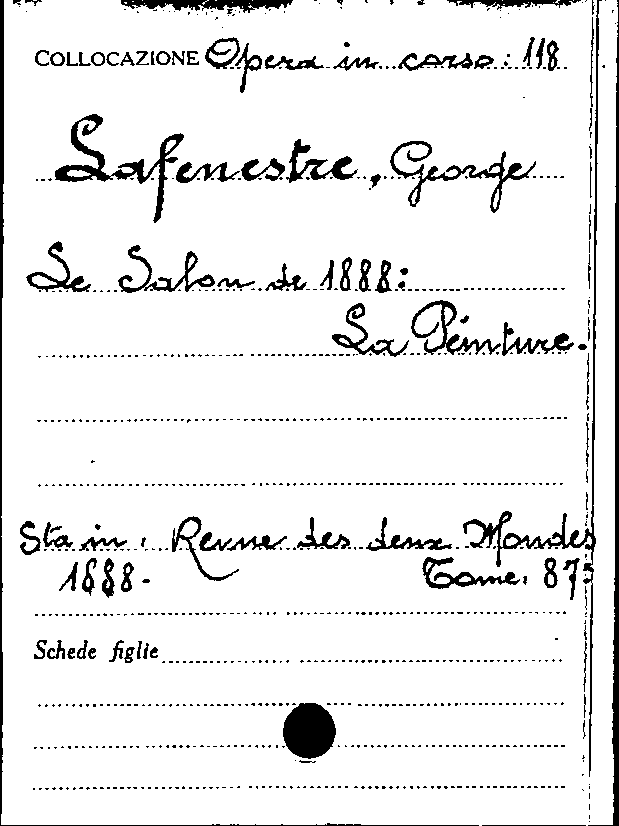 COLLOCAZIONE Opera in corso: 118
Lafenestre, George
Le Salon de 1888:
La Peinture.
Sta in: Revue des deux Mondes
1888- Tome. 87:
Schede figlie